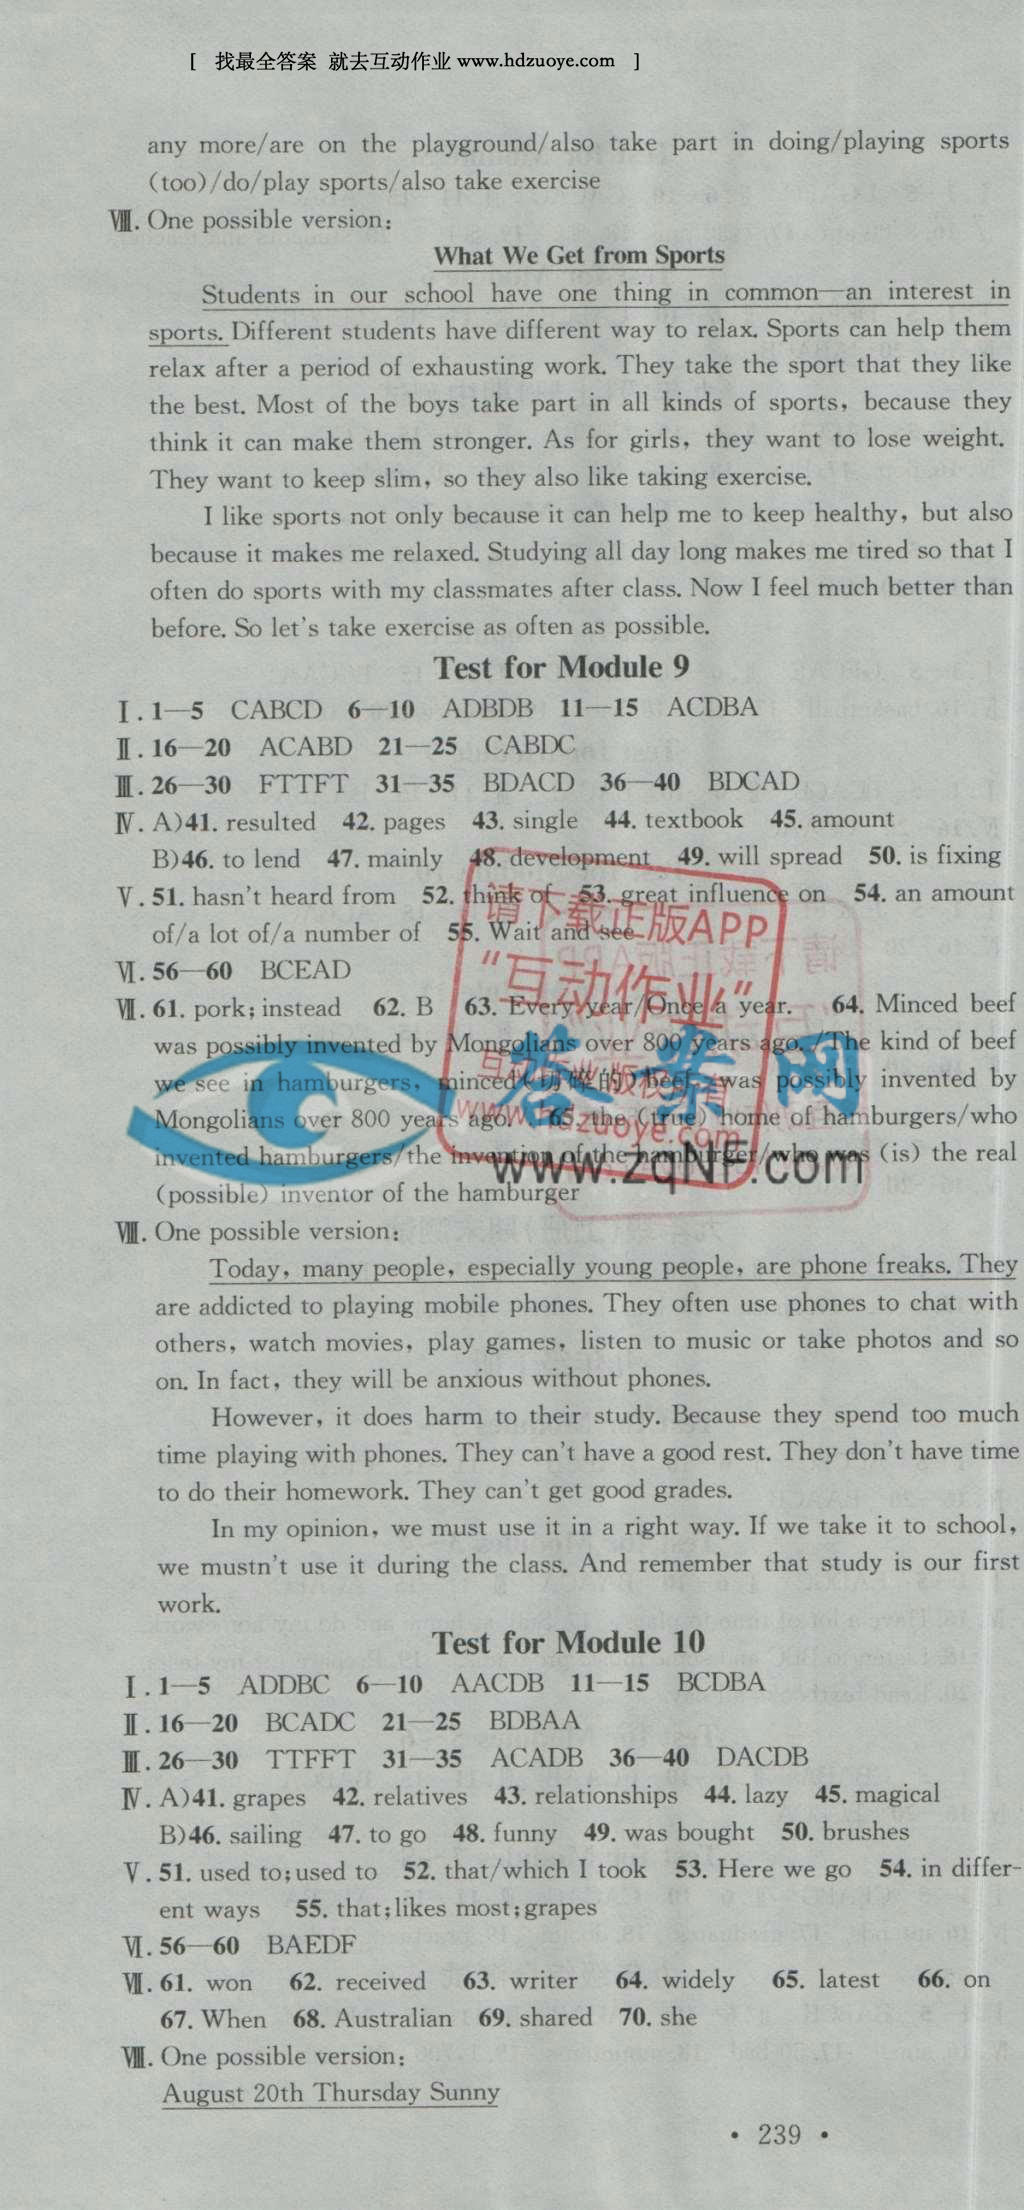 [ 找最全答案 就去互动作业 www.hdzuoye.com ]
any more/are on the playground/also take part in doing/playing sports
(too)/do/play sports/also take exercise
Ⅷ. One possible version:
What We Get from Sports
Students in our school have one thing in common—an interest in
sports. Different students have different way to relax. Sports can help them
relax after a period of exhausting work. They take the sport that they like
the best. Most of the boys take part in all kinds of sports, because they
think it can make them stronger. As for girls, they want to lose weight.
They want to keep slim, so they also like taking exercise.
I like sports not only because it can help me to keep healthy, but also
because it makes me relaxed. Studying all day long makes me tired so that I
often do sports with my classmates after class. Now I feel much better than
before. So let's take exercise as often as possible.
Test for Module 9
Ⅰ. 1—5 CABCD 6—10 ADBDB 11—15 ACDBA
Ⅱ. 16—20 ACABD 21—25 CABDC
Ⅲ. 26—30 FTTFT 31—35 BDACD 36—40 BDCAD
Ⅳ. A)41. resulted 42. pages 43. single 44. textbook 45. amount
B)46. to lend 47. mainly 48. development 49. will spread 50. is fixing
Ⅴ. 51. hasn't heard from 52. think of 53. great influence on 54. an amount
of/a lot of/a number of 55. Wait and see
请下载正版APP
Ⅵ. 56—60 BCEAD
"互动作业"
Ⅶ. 61. pork; instead 62. B 63. Every year/Once a year. 64. Minced beef
was possibly invented by Mongolians over 800 years ago. /The kind of beef
答案网
we see in hamburgers, minced(切碎的) beef, was possibly invented by
Mongolians over 800 years ago. 65. the (true) home of hamburgers/who
www.hdzuoye.com
invented hamburgers/the invention of the hamburger/who was (is) the real
www.zqNF.com
(possible) inventor of the hamburger
Ⅷ. One possible version:
Today, many people, especially young people, are phone freaks. They
are addicted to playing mobile phones. They often use phones to chat with
others, watch movies, play games, listen to music or take photos and so
on. In fact, they will be anxious without phones.
However, it does harm to their study. Because they spend too much
time playing with phones. They can't have a good rest. They don't have time
to do their homework. They can't get good grades.
In my opinion, we must use it in a right way. If we take it to school,
we mustn't use it during the class. And remember that study is our first
work.
Test for Module 10
Ⅰ. 1—5 ADDBC 6—10 AACDB 11—15 BCDBA
Ⅱ. 16—20 BCADC 21—25 BDBAA
Ⅲ. 26—30 TTFFT 31—35 ACADB 36—40 DACDB
Ⅳ. A)41. grapes 42. relatives 43. relationships 44. lazy 45. magical
B)46. sailing 47. to go 48. funny 49. was bought 50. brushes
Ⅴ. 51. used to; used to 52. that/which I took 53. Here we go 54. in differ-
ent ways 55. that; likes most; grapes
Ⅵ. 56—60 BAEDF
Ⅶ. 61. won 62. received 63. writer 64. widely 65. latest 66. on
67. When 68. Australian 69. shared 70. she
Ⅷ. One possible version:
August 20th Thursday Sunny
• 239 •